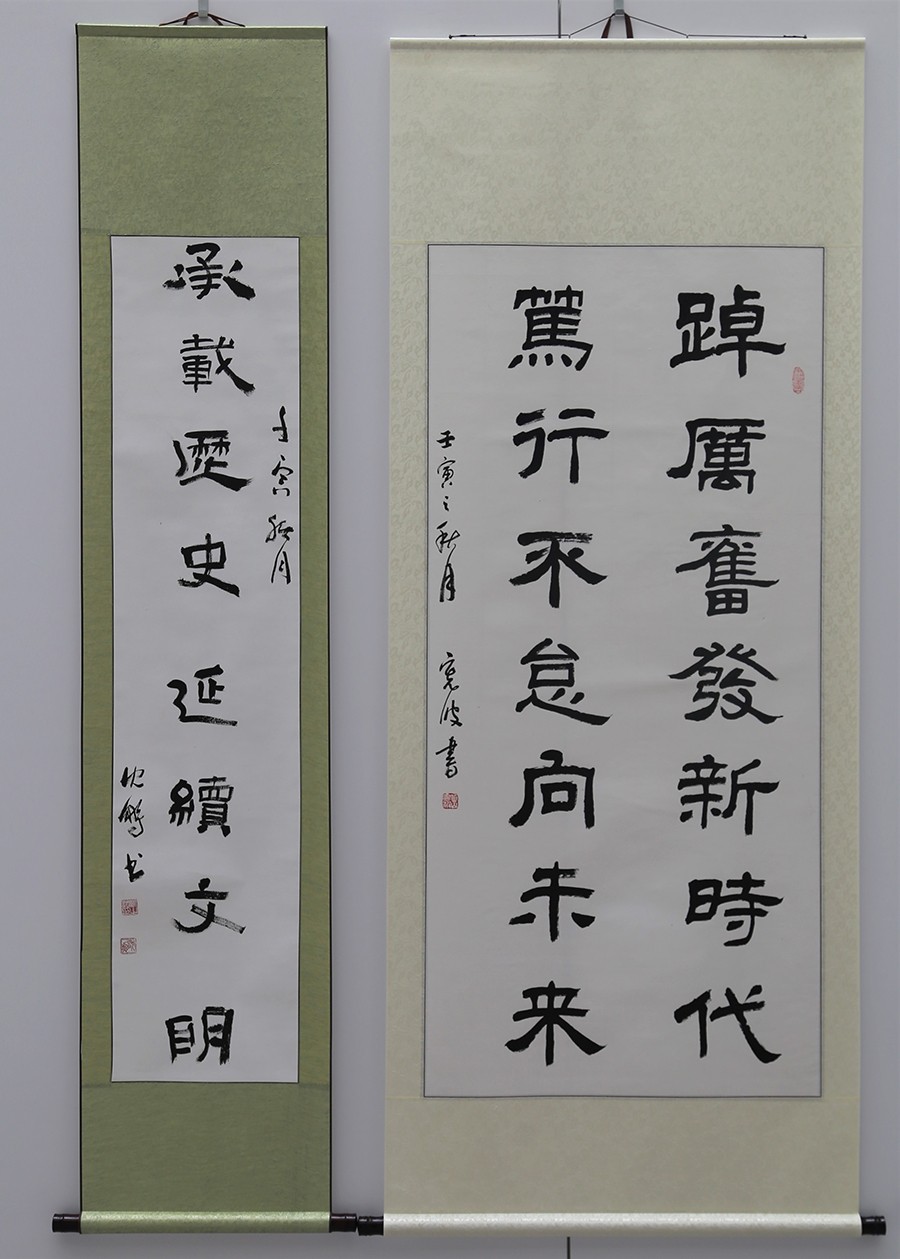 踔厲奮發新時代
篤行不怠向未来
壬寅之秋月 波書
壬寅月
承載歷史延續文明
沈鵬书